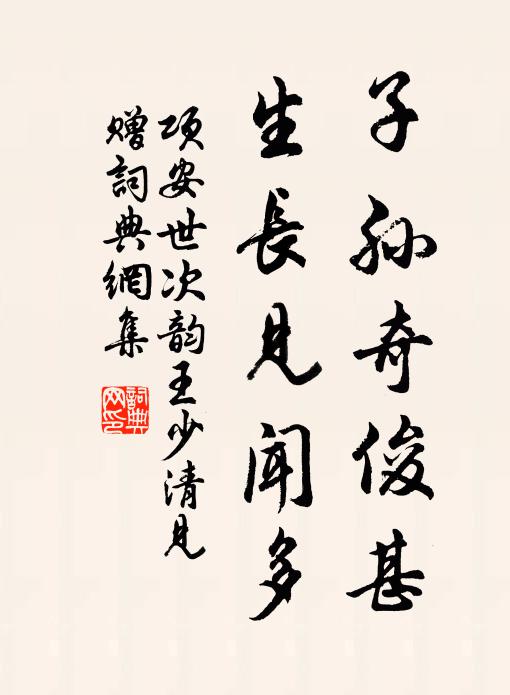 子孙奇俊甚
生長見聞多
项安世次韵王少清見
赠詞典網集
詞典网印